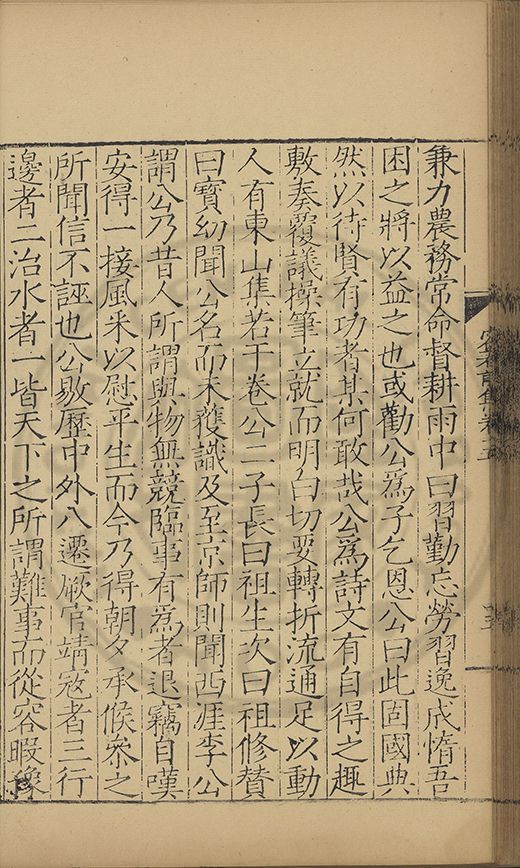 兼力農務常命督耕雨中曰習勤忘勞習逸成惰吾
困之將以益之也或勸公爲子乞恩公曰此固國典
然以待賢有功者某何敢哉公爲詩文有自得之趣
敷奏覆議操筆立就而明白切要轉折流通足以動
人有東山集若干卷公二子長曰祖生次曰祖修贊
曰寶幼聞公名而未獲識及至京師則聞西涯李公
謂公乃昔人所謂與物無競臨事有爲者退竊自嘆
安得一接風采以慰平生而今乃得朝夕承候叅之
所聞信不誣也公敭歷中外八遷厥官靖寇者三行
邊者二治水者一皆天下之所謂難事而從容暇豫